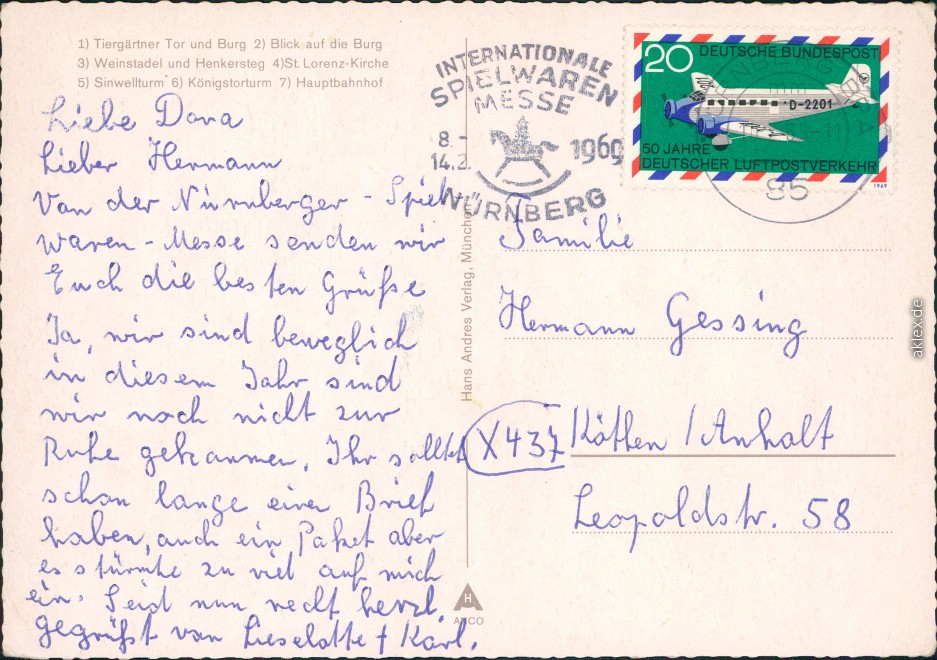 1) Tiergärtner Tor und Burg 2) Blick auf die Burg
3) Weinstadel und Henkersteg 4)St. Lorenz-Kirche
5) Sinwellturm 6) Königstorturm 7) Hauptbahnhof
Liebe Dora
Lieber Hermann
Von der Nürnberger - Spiel
waren - Messe senden wir
Euch die besten Grüße
Ja, wir sind beweglich
in diesem Jahr sind
wir noch nicht zur
Ruhe gekommen, Ihr solltet
schon lange einen Brief
haben, auch ein Paket aber
es stürmte zu viel auf mich
ein. Seid nun recht herzl.
gegrüßt von Lieselotte + Karl.
INTERNATIONALE
SPIELWAREN
MESSE
8.-
14.2.
1969
NÜRNBERG
85
20 DEUTSCHE BUNDESPOST
D-2201
50 JAHRE
DEUTSCHER LUFTPOSTVERKEHR
1969
Hans Andres Verlag, München
Familie
Hermann Gessing
X437 Köthen / Anhalt
Leopoldstr. 58
H
ANCO
aklex.de